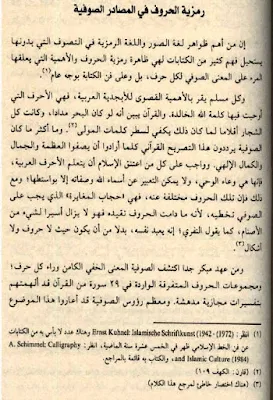 رمزية الحروف في المصادر الصوفية
إن من أهم ظواهر لغة الصور واللغة الرمزية في التصوف التي بدونها
يستحيل فهم كثير من الكتابات لهي ظاهرة رمزية الحروف والأهمية التي يعلقها
المرء على المعنى الصوفي لكل حرف، بل وعلى فن الكتابة بوجه عام(١).
وكل مسلم يقر بالأهمية القصوى للأبجدية العربية، فهي الأحرف التي
أوحيت فيها كلمة الله الخالدة. والقرآن يبين أنه لو كان البحر مدادا، وكانت كل
الأشجار أقلاما لما كان ذلك يكفي لسطر كلمات المولى(٢). وما أكثر ما كان
الصوفية يرددون هذا التصريح القرآني كلما أرادوا أن يصفوا العظمة والجمال
والكمال الإلهي. وواجب على كل من اعتنق الإسلام أن يتعلم الأحرف العربية،
لأنها هي وعاء الوحي، ولا يمكن التعبير عن أسماء الله وصفاته إلا بواسطتها؛ ومع
ذلك فإن تلك الحروف مختلفة عنه، فهي «حجاب المغايرة» الذي يجب على
الصوفي تخطيه، لأنه ما دامت الحروف تقيده فهو لا يزال أسيرا لشيء من
الأصنام، كما يقول النفري؛ إنه يعبد نفسه، بدلا من أن يكون حيث لا حروف ولا
أشكال(٣).
ومن عهد مبكر جدا اكتشف الصوفية المعنى الخفي الكامن وراء كل حرف؛
ومجموعات الحروف المتفرقة الواردة في ٢٩ سورة من القرآن قد ألهمتهم
تفسيرات مجازية مدهشة. ومعظم رؤوس الصوفية قد أعاروا هذا الموضوع
(١) انظر: Ernst Kuhnel: Islamische Schriftkunst (1942 - 1972) وهناك عدد لا بأس به من الكتابات
عن فن الخط الإسلامي ظهر في الخمس عشرة سنة الماضية، انظر: A. Schimmel: Calligraphy
and Islamic Culture (1984) والكتاب به قائمة بالمراجع.
(٢) (قارن: الكهف ١٠٩)
(٣) (هناك اختصار خاطئ لمرجع هذا الكلام)